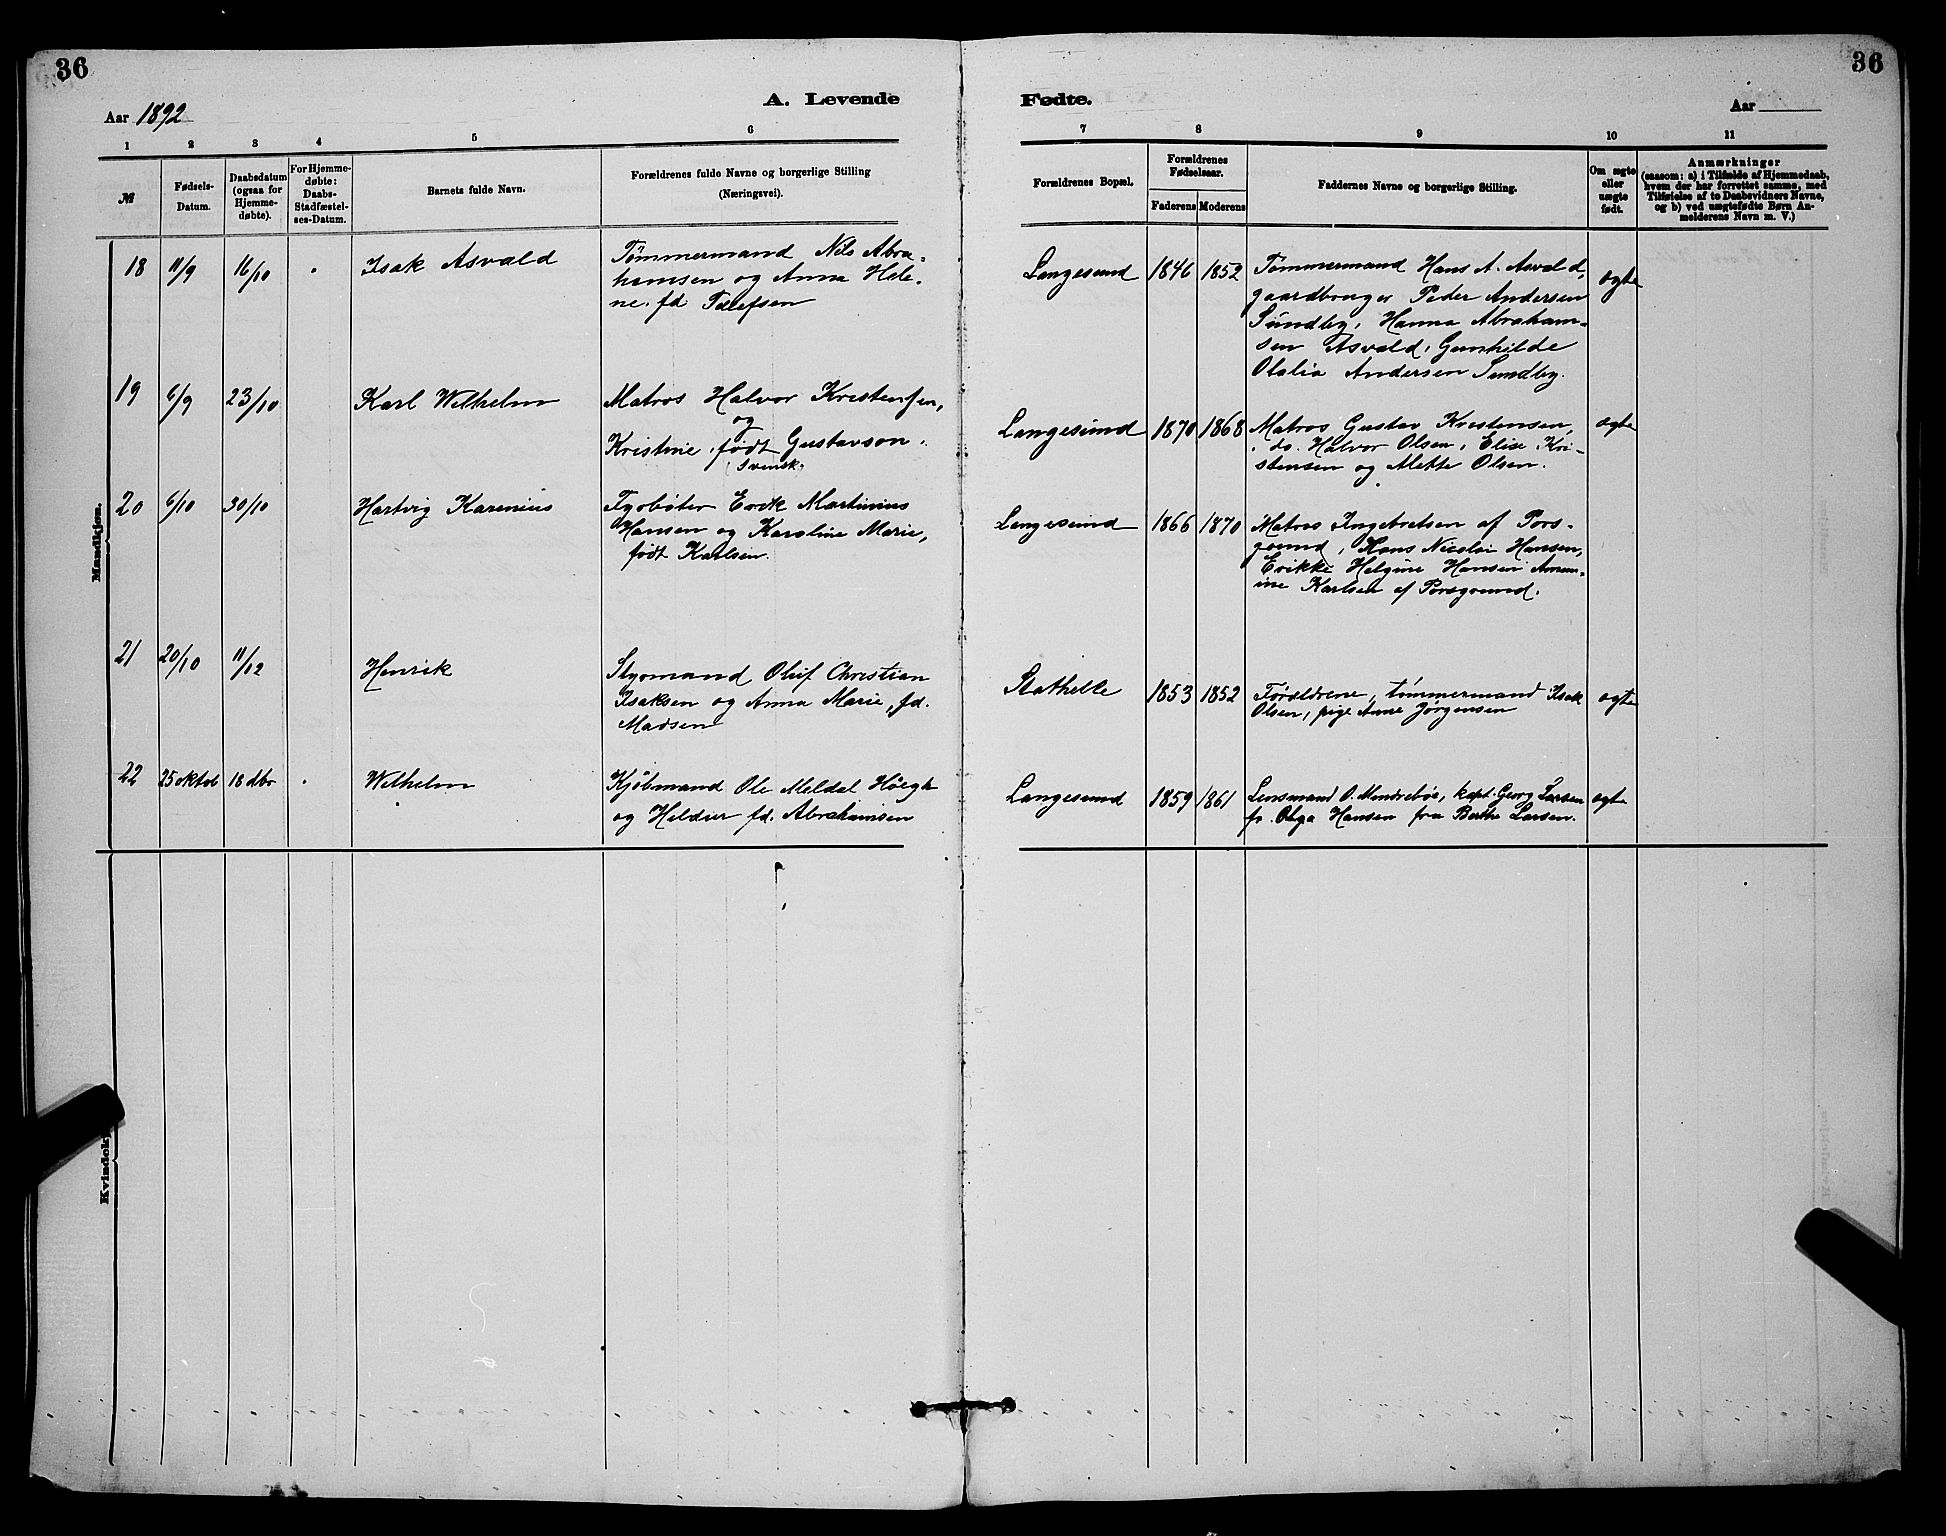 36
Aar 1892
A. Levende
1 2 3 4 5 6
№
Fødsels-
Datum.
Daabsdatum
(ogsaa for
Hjemme-
døbte).
For Hjemme-
døbte:
Daabs-
Stadfæstel-
ses-Datum.
Barnets fulde Navn.
Forældrenes fulde Navne og borgerlige Stilling
(Næringsvei).
Mandkjøn.
18 11/9 16/10 Isak Asvald
Tømmermand Nils Abra-
hamsen og Anna Hele-
ne fd
19 6/9 23/10 Karl Wilhelm
Matros Halvor Kristensen,
og
Kristine, født Gustavson.
Svensk.
20 6/10 30/10 Hartvig Karenius
Fyrbøter Erik Martinius
Hansen og Karoline Marie,
født Karlsen.
21 20/10 11/12 Henrik
Styrmand Oluf Christian
Isaksen og Anna Marie, fd.
Madsen
22 25 oktob 18 dbr Wilhelm
Kjøbmand Ole Meldal Høegh
og fd. Abrahamsen
36
Fødte.
Aar
7 8 9 10 11
Forældrenes Bopæl.
Forældrenes
Fødselsaar.
Faderens Moderens
Faddernes Navne og borgerlige Stilling.
Om ægte
eller
uægte
født.
Anmærkninger
(saasom: a) i Tilfælde af Hjemmedaab,
hvem der har forrettet samme, med
Tilføielse af to Daabsvidners Navne,
og b) ved uægtefødte Børn An-
melderens Navn m. V.)
Langesund 1846 1852 Tømmermand Hans A. Asvald, ægte
gaardbruger Peder Andersen
Sundby, Hanna Abraham-
sen Asvald, Gunhilde
Otalia Andersen Sundby.
Langesund 1870 1868 Matros Gustav Kristensen, ægte
do. Halvor Olsen, Elise Kri-
stensen og Mette Olsen.
Langesund 1866 1870 Matros Ingebretsen af Pors-
grund, Hans Nicolai Hansen,
Erikke Helgine Hansen
Karlsen af Porsgrund.
Stathelle 1853 1852 Forældrene, tømmermand Isak ægte
Olsen, pige Anne Jørgensen
Langesund 1859 1861 Lensmand O. kapt. Georg Larsen ægte
fr. Olga Hansen fru Berthe Larsen.